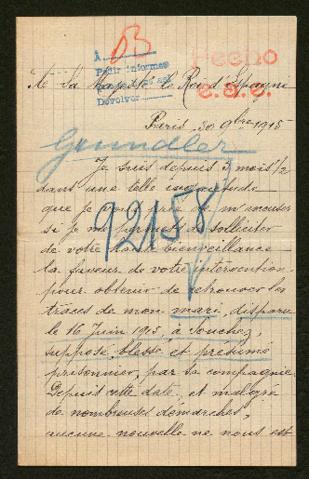 À
DB
Pedir informes
Devolver
Hecho
e.s.e.
À Sa Majesté le Roi d'Espagne
Paris 30 9bre 1915
Grundler
Je suis depuis 5 mois 1/2
dans une telle inquiétude
que je vous prie de m'excuser
si je me permets de solliciter
de votre haute bienveillance
la faveur de votre intervention
pour obtenir de retrouver les
traces de mon mari, disparu
le 16 Juin 1915, à Souchez,
supposé blessé et présumé
prisonnier, par sa compagnie.
Depuis cette date, et malgré
de nombreuses démarches,
aucune nouvelle ne nous est
92158